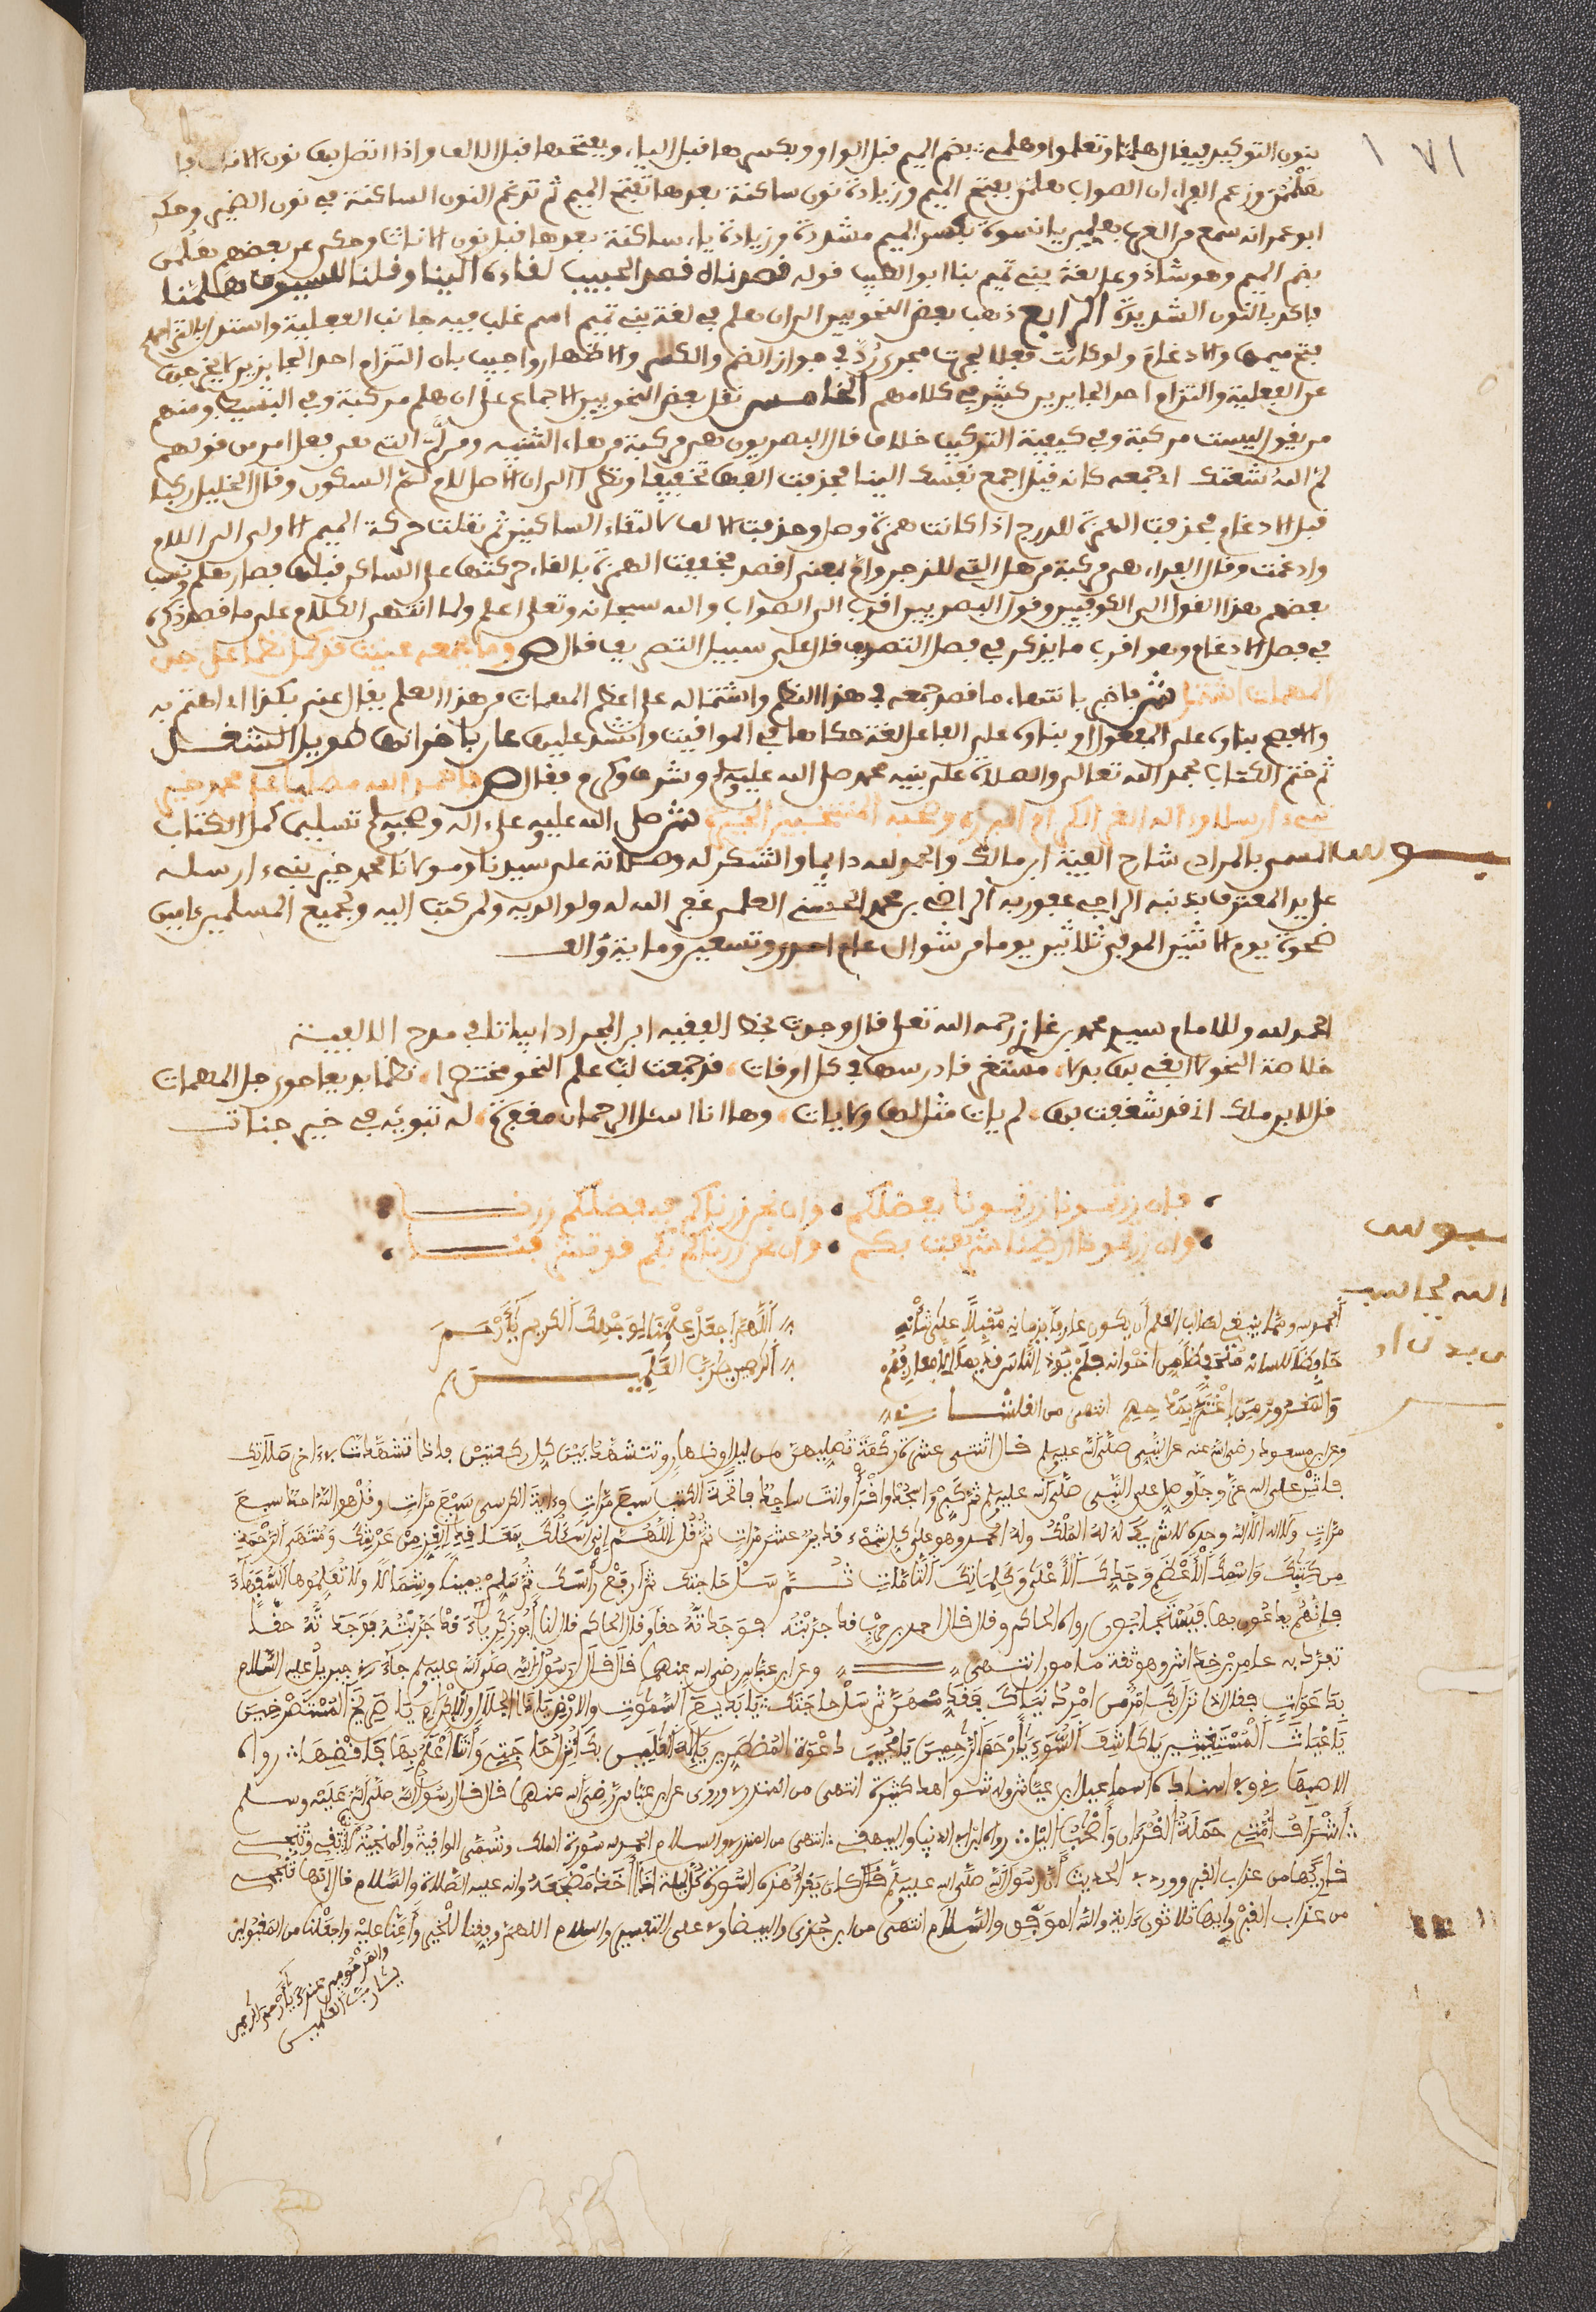 ١٧١
بنون التوكيد فيقال هلمن وتعلموا وهلمي بضم الميم قبل الواو وبكسرها قبل الياء ويفتحها قبل الالف واذا اتصل بها نون الاناث
هلممن وزعم الفراء ان الصواب هلمن بفتح الميم وزيادة نون ساكنة بعدها تفتح الميم ثم تدغم النون الساكنة في نون الضمير وحكى
ابو عمر انه سمع من العرب هلمين يا نسوة بكسر الميم مشددة وزيادة ياء ساكنة بعدها قبل نون الاناث وحكي عن بعضهم هلمن
بضم الميم وهو شاذ وعلى لغة بني تميم بنا ابو الطيب قوله قصدنا له قصد الحبيب لقاؤه الينا وقلنا للسيوف هلمنا
فاكد بالنون الشديدة الرابع ذهب بعض النحويين الى ان هلم في لغة بني تميم اسم غلب فيه جانب الفعلية واستدل بالتزامهم
فتح ميمها والادغام ولو كانت فعلا لجرت مجرى رد في جواز الضم والكسر والاظهار واجيب بان التزام احد الجايزين لا يخرجها
عن الفعلية والتزام احد الجايزين كثير في كلامهم الخامس نقل بعض النحويين الاجماع على ان هلم مركبة وفي البسيط ومنهم
من يقول ليست مركبة وفي كيفية التركيب خلاف قال البصريون هي مركبة من هاء التنبيه ومن لم التي هي فعل امر من قولهم
لم الله شعثك اي جمعه كانه قيل اجمع نفسك الينا فحذفت الفها تخفيفا ونظرا الى ان اصل لام لم السكون وقال الخليل ركبا
قبل الادغام فحذفت الهمزة للدرج اذا كانت همزة وصل وحذفت الالف لالتقاء الساكنين ثم نقلت حركة الميم الاولى الى اللام
وادغمت وقال الفراء هي مركبة من هل التي للزجر وام بمعنى اقصد فخففت الهمزة بالقاء حركتها على الساكن قبلها فصار هلم ونسب
بعضهم هذا القول الى الكوفيين وقول البصريين اقرب الى الصواب والله سبحانه وتعلى اعلم ولما انتهى الكلام على ما قصد ذكره
في فصل الادغام وهو اقرب ما يذكر في فصل التصريف قال على سبيل التصريف قال ص وما بجمعه عنيت قد كمل نظما على جل
المهمات اشتمل ش فاخبر بانتهاء ما قصد جمعه في هذا النظم واشتماله على اعظم المهمات من هذا العلم يقال عني بكذا اي اهتم به
والفصيح بناؤه على المفعول او بناؤه على الفاعل لغة حكاها في اليواقيت وانشد عليها عار باخواها طويل الشغل
ثم ختم الكتاب بحمد الله تعالى والصلاة على نبيه محمد صلى الله عليه وسلم وشرف وكرم فقال ص فاحمد الله مصليا على محمد خير
نبيء ارسلا وءاله الغر الكرام البررة وصحبه المنتخبين الخيرة ش صلى الله عليه وعلى ءاله وصحبه وسلم تسليما كمل الكتاب
المسمى بالمرادي شارح الفية ابن مالك والحمد لله دايما والشكر له وصلاته على سيدنا ومولانا محمد خير نبيء ارسله
على يد المعترف بذنبه الراجي عفو ربه الراضي بن محمد الحسني العلمي غفر الله له ولوالديه ولمن كتب اليه ولجميع المسلمين ءامين
ضحوة يوم الاثنين الموفي ثلاثين يوما من شوال عام احد وتسعين وماية والف
الحمد لله وللامام سيد محمد بن غازي رحمه الله تعلى قال وجدت بخط الفقيه ابن البجرادي ابياتا في مدح الالفية
خلاصة النحو لا ابغي بها بدلا مستغرقا درسها في كل اوقات قد جمعت لب علم النحو مختصرا نظما بديعا حوى جل المهمات
قل لابن مالك اني قد شغفت بها لم يات مثل لها ولا يات وها انا اسئل الرحمان مغفرة له تبوئه في خير جنات
فان زرتمونا زرتمونا بفضلكم وان نحن زرناكم فبفضلكم زرنا
وان زرتمونا ارضنا شرفت بكم وان نحن زرناكم بكم فوقنا شرفنا
الحمد لله ومما ينبغي لطالب العلم ان يكون عارفا بزمانه مقبلا على شأنه
حافظا للسانه متحفظا من اخوانه فلم يوذ الناس قديما الا معارفهم
والمغرور من اغتر بمدحهم انتهى من القلشاني
اللهم اجعل علمنا لوجهك الكريم يا ارحم
الراحمين يا رب العلمين
وعن ابن مسعود رضي الله عنه عن النبي صلى الله عليه وسلم قال اثنتى عشرة ركعة تصليهن من ليل او نهار وتتشهد بين كل ركعتين فاذا تشهدت في ءاخر صلاتك
فاثن على الله عز وجل وصل على النبي صلى الله عليه وسلم ثم كبر واسجد واقرأ وانت ساجد فاتحة الكتاب سبع مرات وءاية الكرسي سبع مرات وقل هو الله احد سبع
مرات ولا اله الا الله وحده لا شريك له له الملك وله الحمد وهو على كل شيء قدير عشر مرات ثم قل اللهم اني اسئلك بمعاقد العز من عرشك ومنتهى الرحمة
من كتابك واسمك الاعظم وجدك الاعلى وكلماتك التامات ثم سل حاجتك ثم ارفع رأسك ثم سلم يمينا وشمالا ولا تعلموها السفهاء
فانهم يدعون بها فيستجاب رواه الحاكم وقال قال احمد بن حرب قد جربته فوجدته حقا وقال الحاكم قال لنا ابو زكرياء قد جربته فوجدته حقا
تفرد به عامر بن خداش وهو ثقة مامون انتهى وعن ابن عباس رضي الله عنهما قال قال رسول الله صلى الله عليه وسلم جاءني جبريل عليه السلام
بدعوات فقال اذا نزل بك امر من امر دنياك فقدمهن ثم سل حاجتك يا بديع السموات والارض يا ذا الجلال والاكرام يا صريخ المستصرخين
يا غياث المستغيثين يا كاشف السوء يا ارحم الراحمين يا مجيب دعوة المضطرين يا اله العلمين بك انزل حاجتي وانت اعلم بها فاقضها رواه
الاصبهاني وفي اسناده اسماعيل بن عياش وله شواهد كثيرة انتهى من المنذري وروي عن ابن عباس رضي الله عنهما قال قال رسول الله صلى الله عليه وسلم
اشراف امتي حملة القرءان واصحاب اليل رواه ابن ابي الدنيا والبيهقي انتهى من المنذري والسلام الحمد لله سورة الملك وتسمى الواقية والمنجية لانها تقي وتنجي
قارئها من عذاب القبر وورد في الحديث ان رسول الله صلى الله عليه وسلم كان يقرأ هذه السورة كل ليلة اذا اخذ مضجعه وانه عليه الصلاة والسلام قال انها تنجي
من عذاب القبر وايها ثلاثون ءاية والله الموفق والسلام انتهى من ابن جزي والبيضاوي على التفسير والسلام اللهم وفقنا للخير واعنا عليه واجعلنا من المقبولين
يا رب العلمين